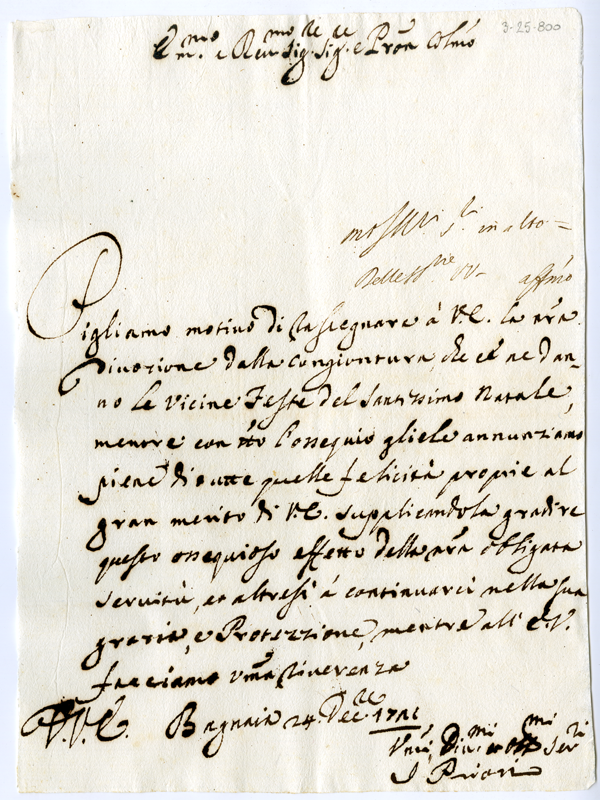 3-25-800
Em.mo e Reu.mo Sig.re Sig.re e Prōn Colmō
in alto =
Delle SS.rie VV- affmō
Pigliamo motiuo di Rassegnare á V.E. la nrā
Diuozione dalla Congiontura, che cé ne dan=
no le Vicine Feste del Santissimo Natale,
mentre con ttō l'ossequio gliele annunziamo
piene di tutte quelle felicità proprie al
gran merito di V.E. supplicandola gradire
questo ossequioso effetto della nrā obligata
seruitù, et altresì á continuarci nella sua
grazia, e Protezzione, mentre all' E.V.
facciamo vmā Riuerenza
D.V.E. Bagnaia 24. Dec.re 1721
Vmi, Diu.mi et Obb.mi Ser.ri
I Priori